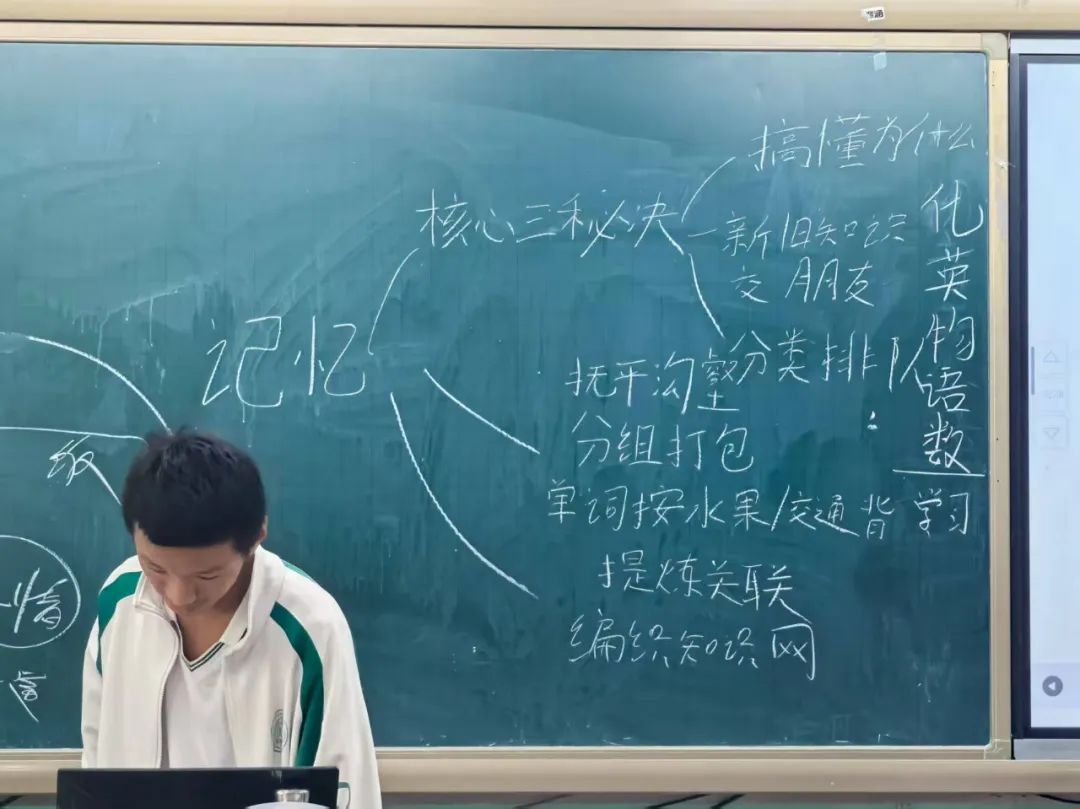 搞懂为什么
核心三秘诀
新旧知识
交朋友
记忆
分类排队
抚平沟壑
分组打包
单词按水果/交通背
提炼关联
编织知识网
化英物语数
学习
级
情